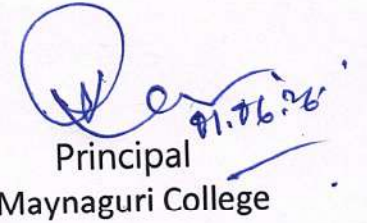 01.06.26
Principal
Maynaguri College